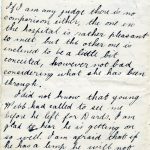 If I am any judge there is no
comparison either, the one in
the hospital is rather pleasant
to meet but the other one is
inclined to be a little bit
conceited, however not bad
considering what she has been
through.
I did not know that young
Webb had called to see me
before he left for Pards. I am
glad to hear he is getting on
so well. I am afraid that if
he has a limp he will not